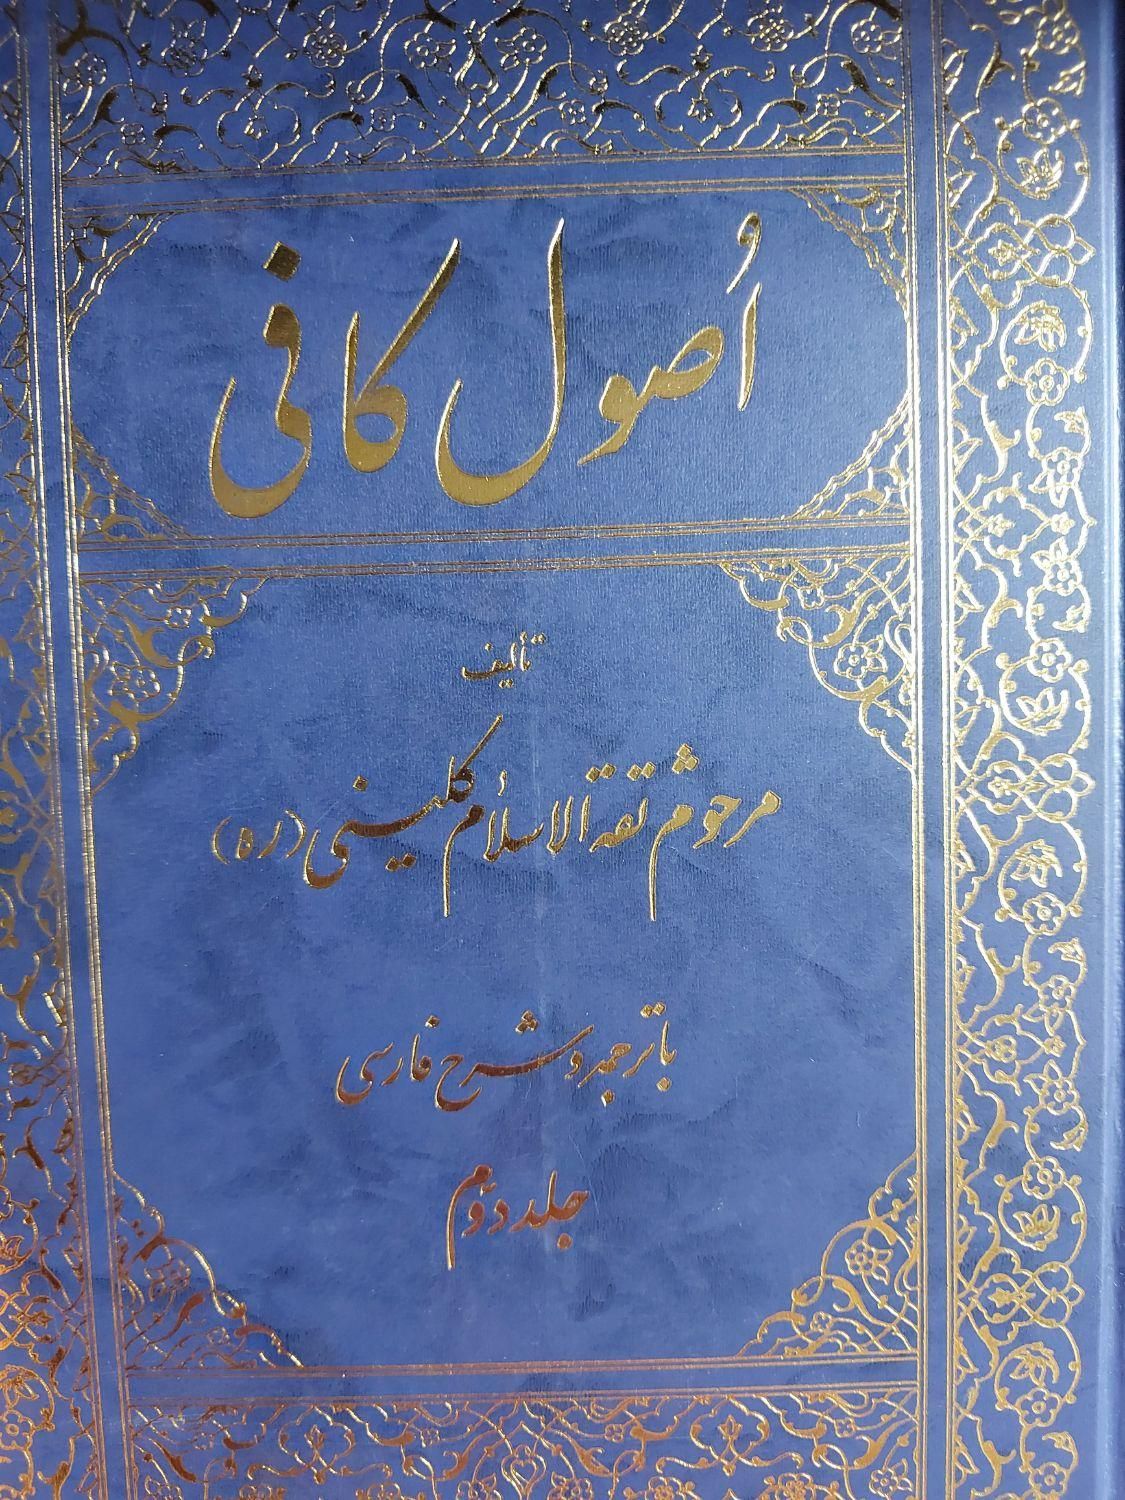 اُصول کافی
تألیف
مرحوم ثقة الاسلام کلینی (ره)
با ترجمه و شرح فارسی
جلد دوم